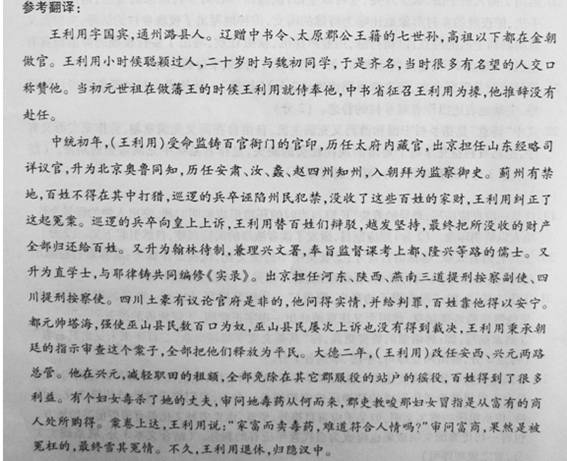 参考翻译：
王利用字国宾，通州潞县人。辽赠中书令、太原郡公王籍的七世孙，高祖以下都在金朝
做官。王利用小时候聪颖过人，二十岁时与魏初同学，于是齐名，当时很多有名望的人交口
称赞他。当初元世祖在做藩王的时候王利用就侍奉他，中书省征召王利用为掾，他推辞没有
赴任。
中统初年，（王利用）受命监铸百官衙门的官印，历任太府内藏官，出京担任山东经略司
详议官，升为北京奥鲁同知，历任安肃、汝、蠡、赵四州知州，入朝拜为监察御史。蓟州有禁
地，百姓不得在其中打猎，巡逻的兵卒诬陷州民犯禁，没收了这些百姓的家财，王利用纠正了
这起冤案。巡逻的兵卒向皇上上诉，王利用替百姓们辩驳，越发坚持，最终把所没收的财产
全部归还给百姓。又升为翰林待制，兼理兴文署，奉旨监督课考上都、隆兴等路的儒士。又
升为直学士，与耶律铸共同编修《实录》。出京担任河东、陕西、燕南三道提刑按察副使、四
川提刑按察使。四川土豪有议论官府是非的，他问得实情，并给判罪，百姓靠他得以安宁。
都元帅塔海，强使巫山县民数百口为奴，巫山县民屡次上诉也没有得到裁决，王利用秉承朝
廷的指示审查这个案子，全部把他们释放为平民。大德二年，（王利用）改任安西、兴元两路
总管。他在兴元，减轻职田的租额，全部免除在其它郡服役的站户的徭役，百姓得到了很多
利益。有个妇女毒杀了她的丈夫，审问她毒药从何而来，郡吏教唆那妇女冒指是从富有的商
人处所购得。案卷上达，王利用说：“家富而卖毒药，难道符合人情吗？”审问富商，果然是被
冤枉的，最终雪其冤情。不久，王利用退休，归隐汉中。